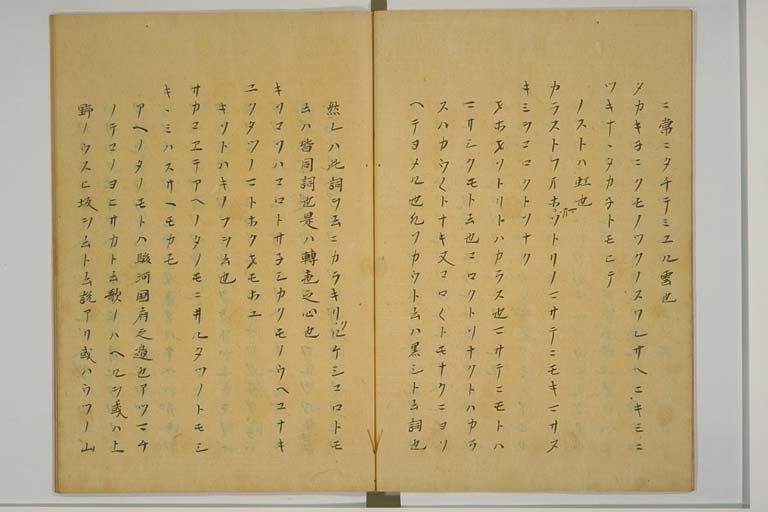 ニ常ニタチテミユル雲也
タカキネニクモノツクノスワレサヘニキミニ
ツキナヽタカネトモヒテ
ノストハ虹也
カラストフ大ホヲソトリノマサテニモキマサヌ
キミヲコロクトソナク
ヲホヲソトリトハカラス也マサテニモトハ
マサシクモト云也コロクトソナクトハカラ
スハカウ〱トナキ又コロ〱トモナクニヨソ
ヘテヨメル也
然レハ此詞ヲ云ニカラキリ
云ハ皆同詞也是ハ轉也之心也
キリコリハコロトサネミカクモノウヘユナキ
ユクタツノマトホクヲモホユ
キソトハキノフヲ云也
サカコエテアヘノタノモニ井ルタツノトモシ
キヽミハアスサヘモカモ
アヘノタノモトハ駿河国府之邊也アツマチ
ノテコノヨヒサカト云歌ノハヘルヲ或ハ上
野ノウスヒ坂ヲ云ト云説アリ或ハウツノ山